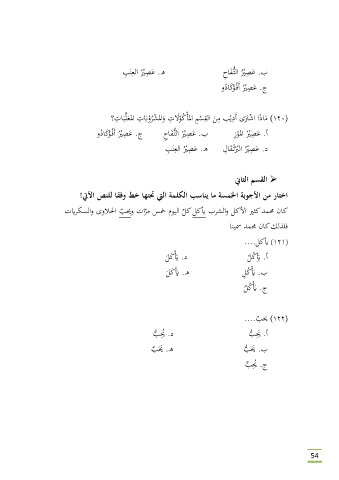 ب. عَصِيْرُ التُّفَاحِ ه. عَصِيْرُ العِنَبِ
ج. عَصِيْرُ أَفُوْكَادُو
(١٢٠) مَاذَا اشْتَرَى أَدِيْب مِنَ القِسْمِ المَأْكُوْلَاتِ وَالمَشْرُوْبَاتِ المُعَلَّبَاتِ؟
أ. عَصِيْرُ المَوْزِ ب. عَصِيْرُ التُّفَاحِ ج. عَصِيْرُ أَفُوْكَادُو
د. عَصِيْرُ البُرْتُقَالِ ه. عَصِيْرُ العِنَبِ
➤ القسم الثاني
اختار من الأجوبة الخمسة ما يناسب الكلمة التي تحتها خط وفقا للنص الآتي!
كان محمد كثير الأكل والشرب يأكل كلّ اليوم خمس مرّات ويحبّ الحلاوى والسكريات
فلذلك كان محمد سمينا
(١٢١) يأكل....
أ. يَأْكُلُ د. يَأْكُلَ
ب. يَأْكُلِ ه. يَأْكَلَ
ج. يَأْكُلُ
(١٢٢) يحبّ....
أ. يَحِبُّ د. يُحِبُّ
ب. يَحَبُّ ه. يَحَبَّ
ج. يُحِبَّ
54